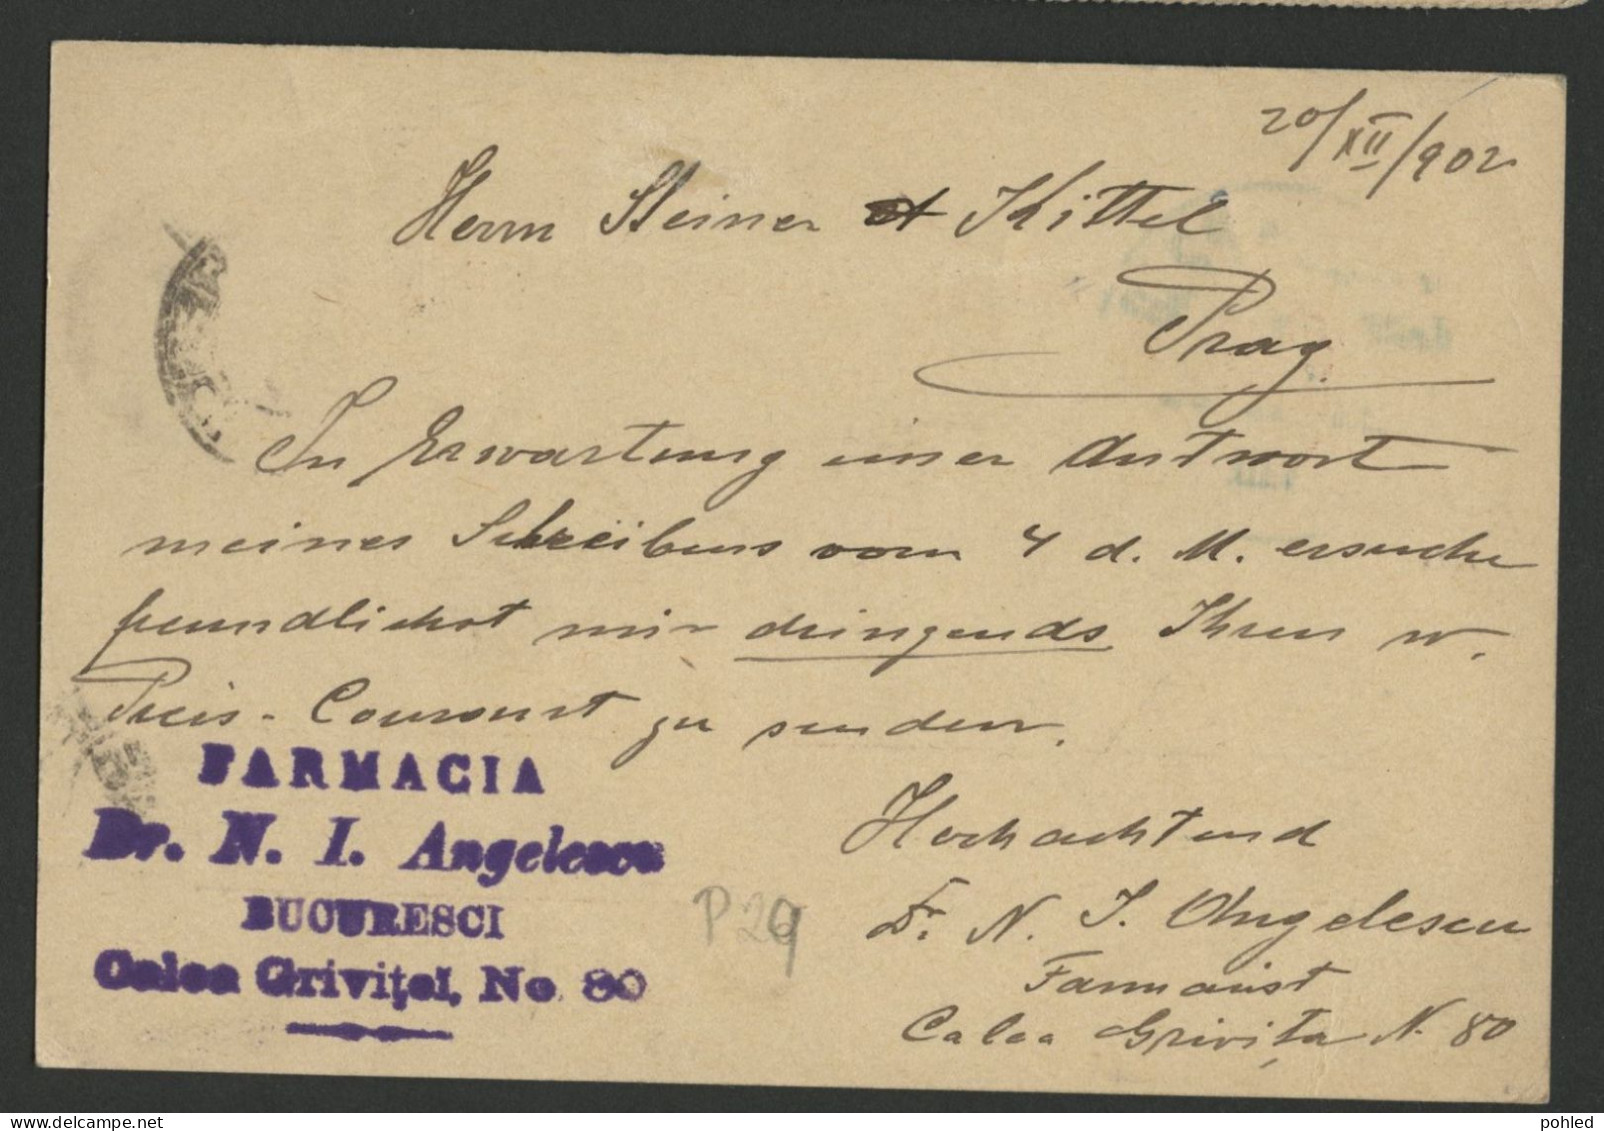 20/XII/902
Herrn Steiner et Kittel
Prag.
In Erwartung einer Antwort
meines Schreibens vom 4 d. M. ersuche
freundlichst mir dringends Ihren w.
Preis-Courant zu senden.
Hochachtend
Dr. N. I. Angelescu
Farmacist
Calea Grivița N. 80
FARMACIA
Dr. N. I. Angelescu
BUCURESCI
Calea Griviţeĭ, No 80
P 29
pohled